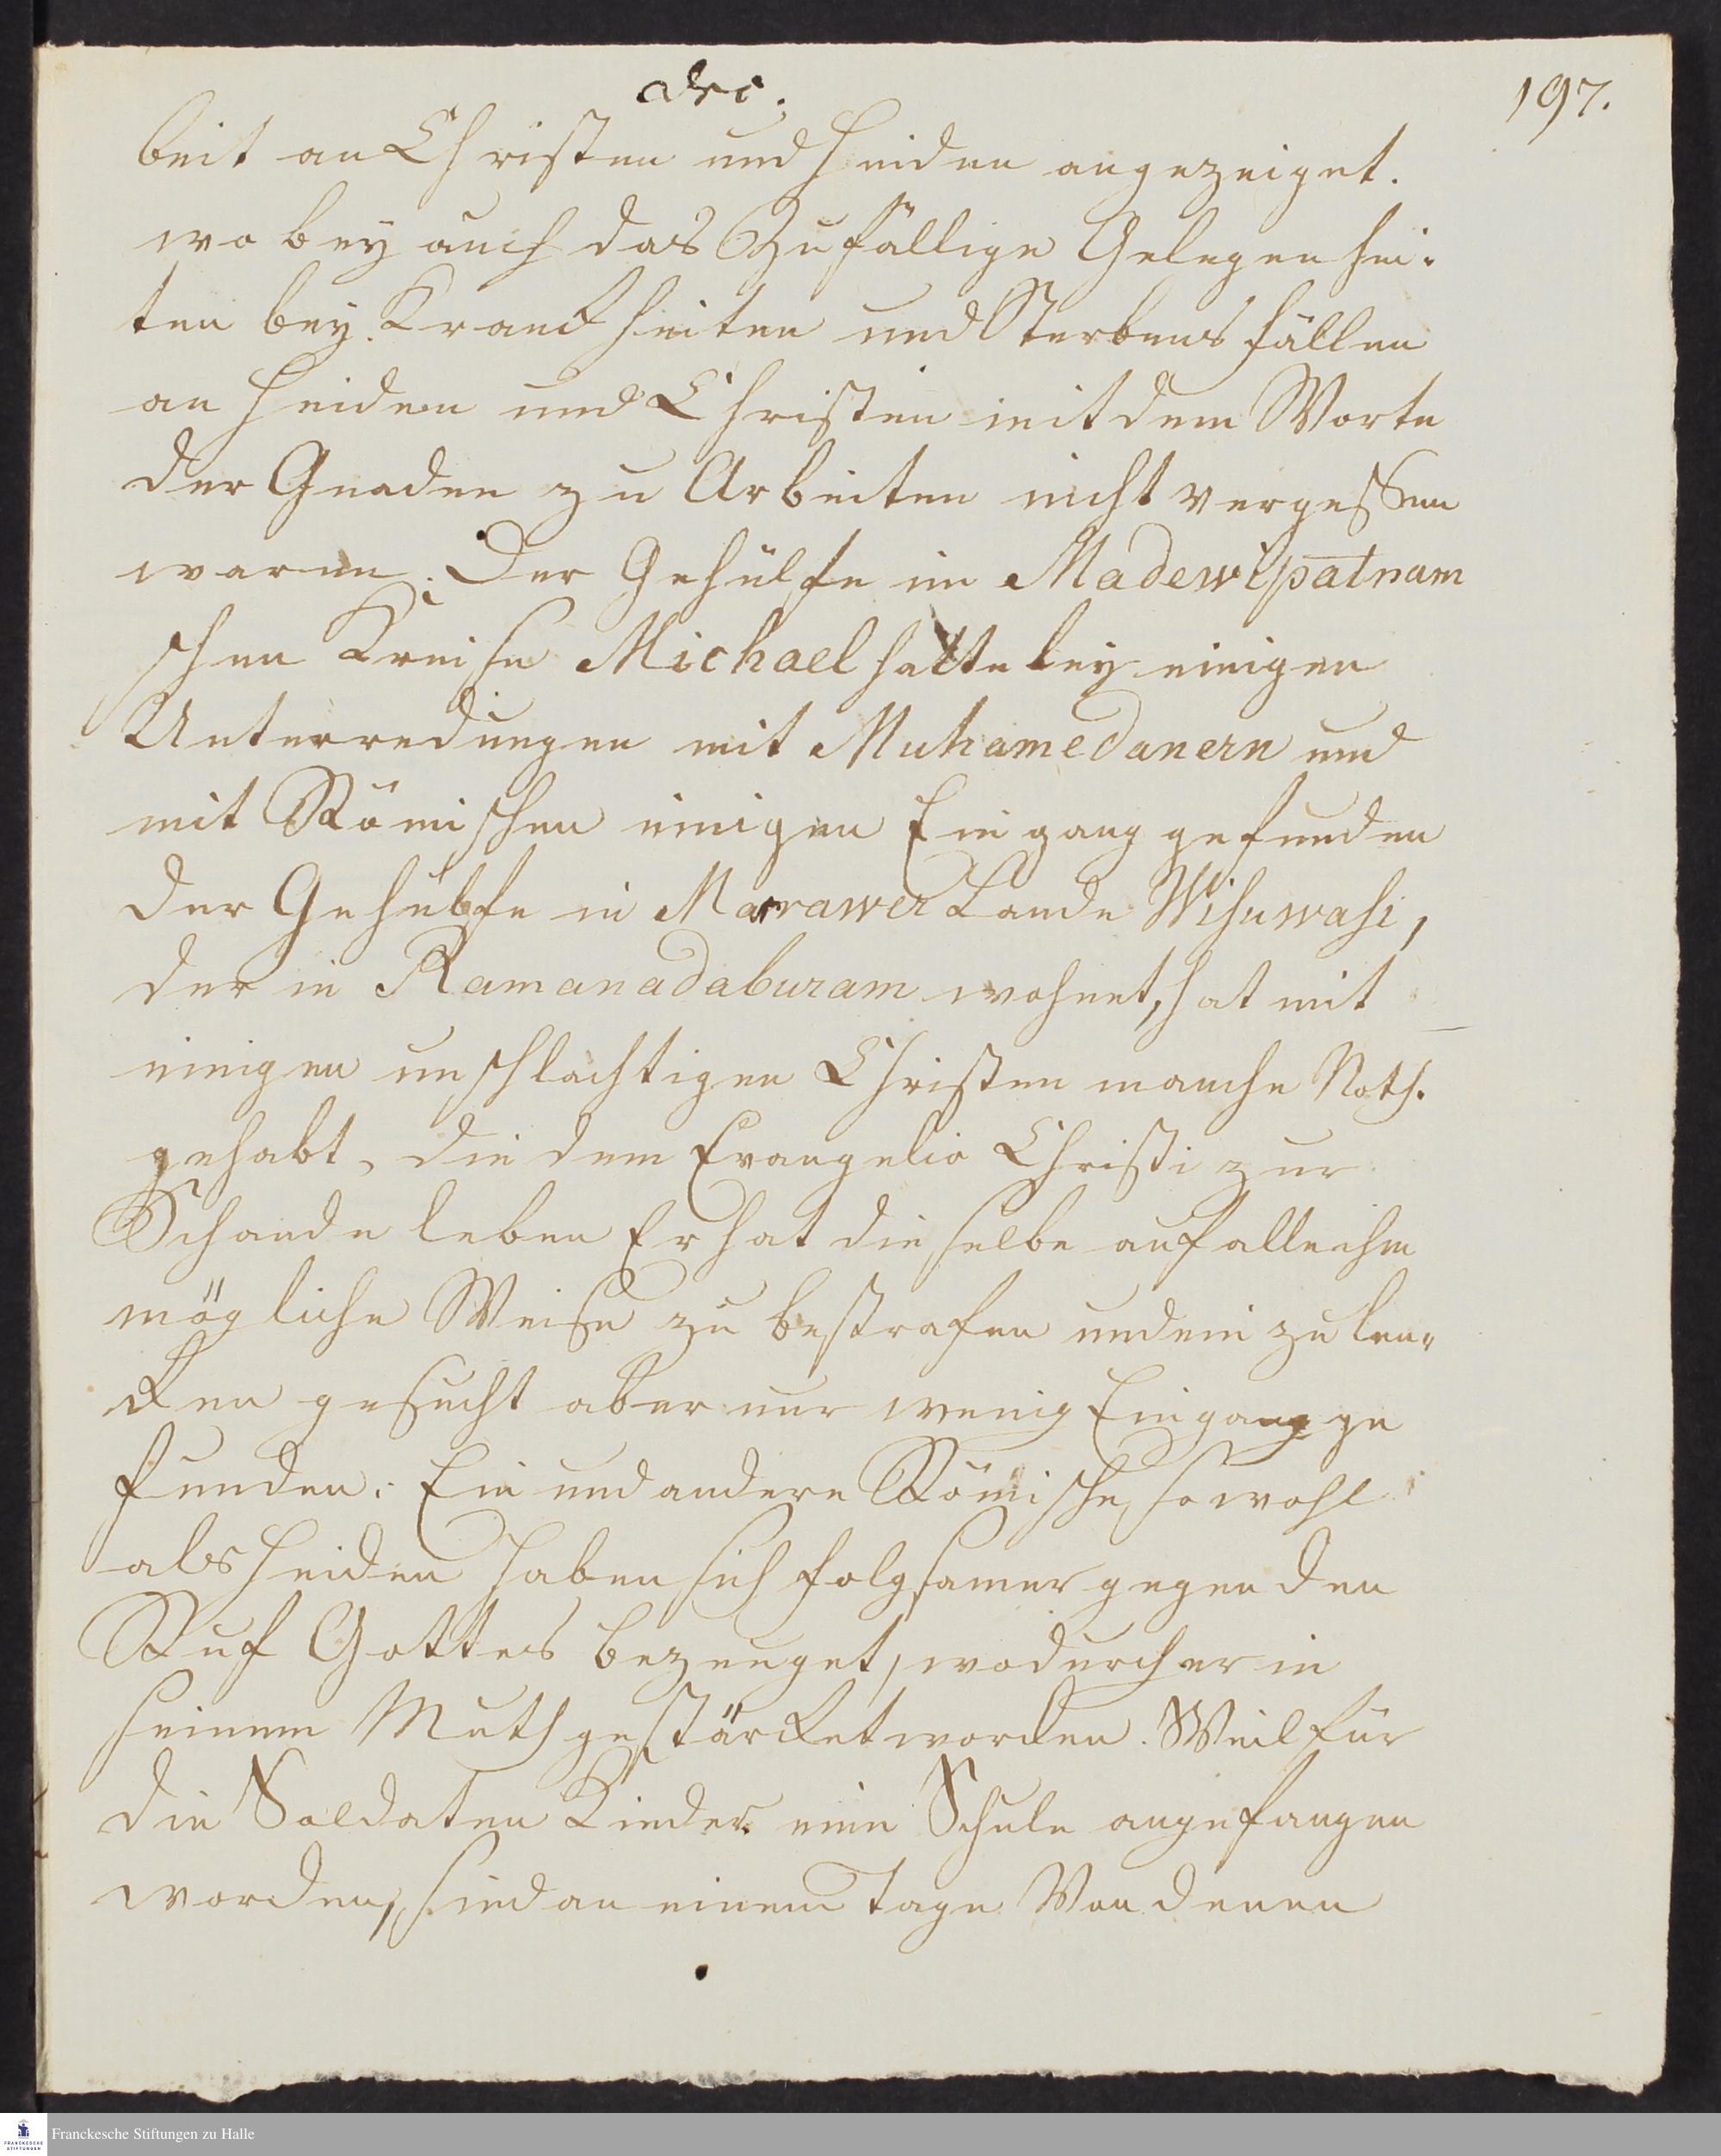 Dec.
197.
beit an Christen und Heiden angezeiget.
wo bey auch das Zufällige Gelegenhei-
ten bey Kranckheiten und Sterbens fällen
an Heiden und Christen mit dem Worte
der Gnaden zu Arbeiten nicht vergessen
waren. Der Gehülfe im Madewipatnam
schen Kreise Michael hatte bey einigen
Unterredungen mit Muhamedanern und
mit Römischen einigen Eingang gefunden
der Gehülfe in Marrawer Lande Wisuwasi,
der in Ramanadaburam wohnet, hat mit
einigen unschlachtigen Christen manche Noth.
gehabt, die dem Evangelio Christi zur
Schande leben Er hat die selbe auf alle ihm
mögliche Weise zu bestrafen und ein zu len-
cken gesucht aber nur wenig Eingang ge
funden. Ein und andere Römische, so wohl
als Heiden haben sich folgsamer gegen den
Ruf Gottes bezeuget, wodurch er in
seinem Muth gestärcket worden. Weil für
die Soldaten Kinder eine Schule angefangen
worden, sind an einem Tage Von denen
Franckesche Stiftungen zu Halle